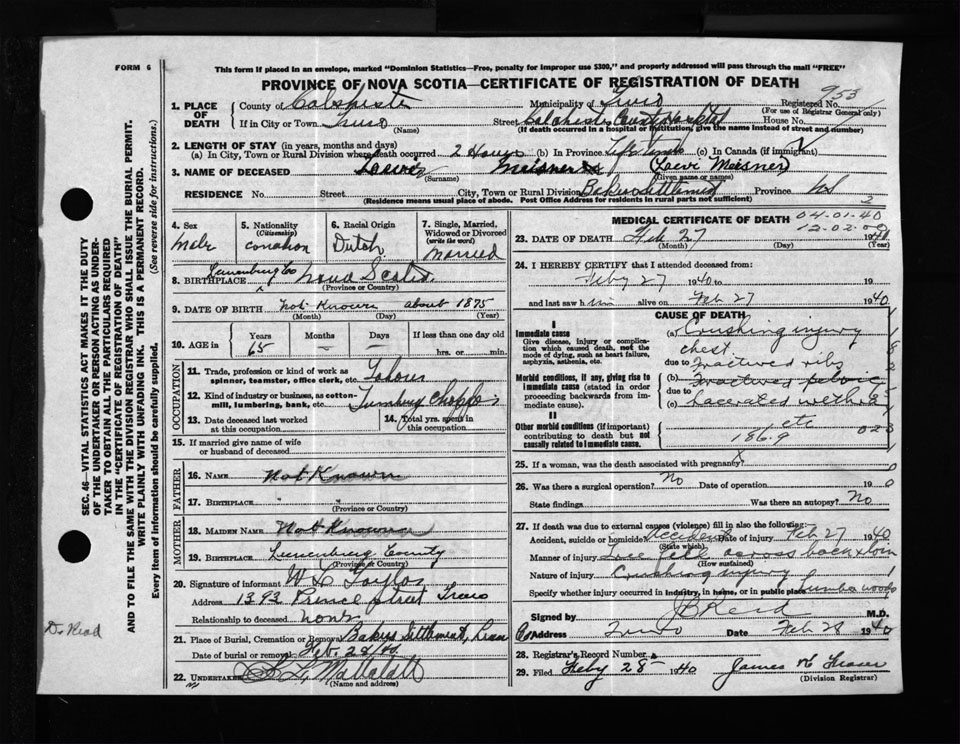 FORM 6
This form if placed in an envelope, marked "Dominion Statistics—Free, penalty for improper use $300," and properly addressed will pass through the mail "FREE"
PROVINCE OF NOVA SCOTIA—CERTIFICATE OF REGISTRATION OF DEATH
953
1. PLACE OF DEATH County of Colchester Municipality of Truro Registered No.
(For use of Registrar General only)
If in City or Town Truro (Name) Street Colchester County Hospital House No.
(If death occurred in a hospital or institution, give the name instead of street and number)
2. LENGTH OF STAY (in years, months and days)
(a) In City, Town or Rural Division where death occurred 2 Hours (b) In Province Life time (c) In Canada (if immigrant)
3. NAME OF DECEASED Meisner (Loewi Meisner)
(Surname) (Given name or names)
RESIDENCE No. Street City, Town or Rural Division Bakers Settlement Province NS
(Residence means usual place of abode. Post Office Address for residents in rural parts not sufficient) 2
4. Sex
male
5. Nationality (Citizenship)
6. Racial Origin
Dutch
7. Single, Married, Widowed or Divorced (write the word)
married
8. BIRTHPLACE Lunenburg Co Nova Scotia
(Province or Country)
9. DATE OF BIRTH Not Known about 1875
(Month) (Day) (Year)
10. AGE in Years Months Days If less than one day old
65 — — hrs. or min.
OCCUPATION
11. Trade, profession or kind of work as spinner, teamster, office clerk, etc. Labourer
12. Kind of industry or business, as cotton-mill, lumbering, bank, etc.
13. Date deceased last worked at this occupation
14. Total yrs. spent in this occupation
15. If married give name of wife or husband of deceased
FATHER
16. NAME Not Known
17. BIRTHPLACE " "
(Province or Country)
MOTHER
18. MAIDEN NAME Not Known
19. BIRTHPLACE Lunenburg County
(Province or Country)
20. Signature of informant W L Taylor
Address 1393 Prince Street Truro
Relationship to deceased none
21. Place of Burial, Cremation or Removal Bakers Settlement, Lunen
Date of burial or removal Feb. 29/40.
22. UNDERTAKER
(Name and address)
MEDICAL CERTIFICATE OF DEATH
04-01-40
12-02-00
23. DATE OF DEATH Feb 27 1940
(Month) (Day) (Year)
24. I HEREBY CERTIFY that I attended deceased from:
Feby 27 1940 to 19
and last saw him alive on Feb 27 1940
CAUSE OF DEATH
I
Immediate cause
Give disease, injury or complication which caused death, not the mode of dying, such as heart failure, asphyxia, asthenia, etc.
(a) Crushing injury chest
due to Fractured ribs
Morbid conditions, if any, giving rise to immediate cause (stated in order proceeding backwards from immediate cause).
(b) Fractured pelvis
due to
(c) Lacerated urethra
II
Other morbid conditions (if important) contributing to death but not causally related to immediate cause.
etc
186.9
25. If a woman, was the death associated with pregnancy? X
26. Was there a surgical operation? No Date of operation 19
State findings Was there an autopsy? No
27. If death was due to external causes (violence) fill in also the following:
Accident, suicide or homicide? Accident Date of injury Feb 27 1940
(State which)
Manner of injury Tree fell across back & loin
(How sustained)
Nature of injury Crushing injury
Specify whether injury occurred in industry, in home, or in public place Lumber woods
Signed by J B Reid M.D.
Address Truro Date Feb 28 1940
28. Registrar's Record Number
29. Filed Feby 28 1940
(Division Registrar)
SEC. 46—VITAL STATISTICS ACT MAKES IT THE DUTY
OF THE UNDERTAKER OR PERSON ACTING AS UNDER-
TAKER TO OBTAIN ALL THE PARTICULARS REQUIRED
IN THE "CERTIFICATE OF REGISTRATION OF DEATH"
AND TO FILE THE SAME WITH THE DIVISION REGISTRAR WHO SHALL ISSUE THE BURIAL PERMIT.
WRITE PLAINLY WITH UNFADING INK. THIS IS A PERMANENT RECORD.
Every item of information should be carefully supplied. (See reverse side for instructions.)